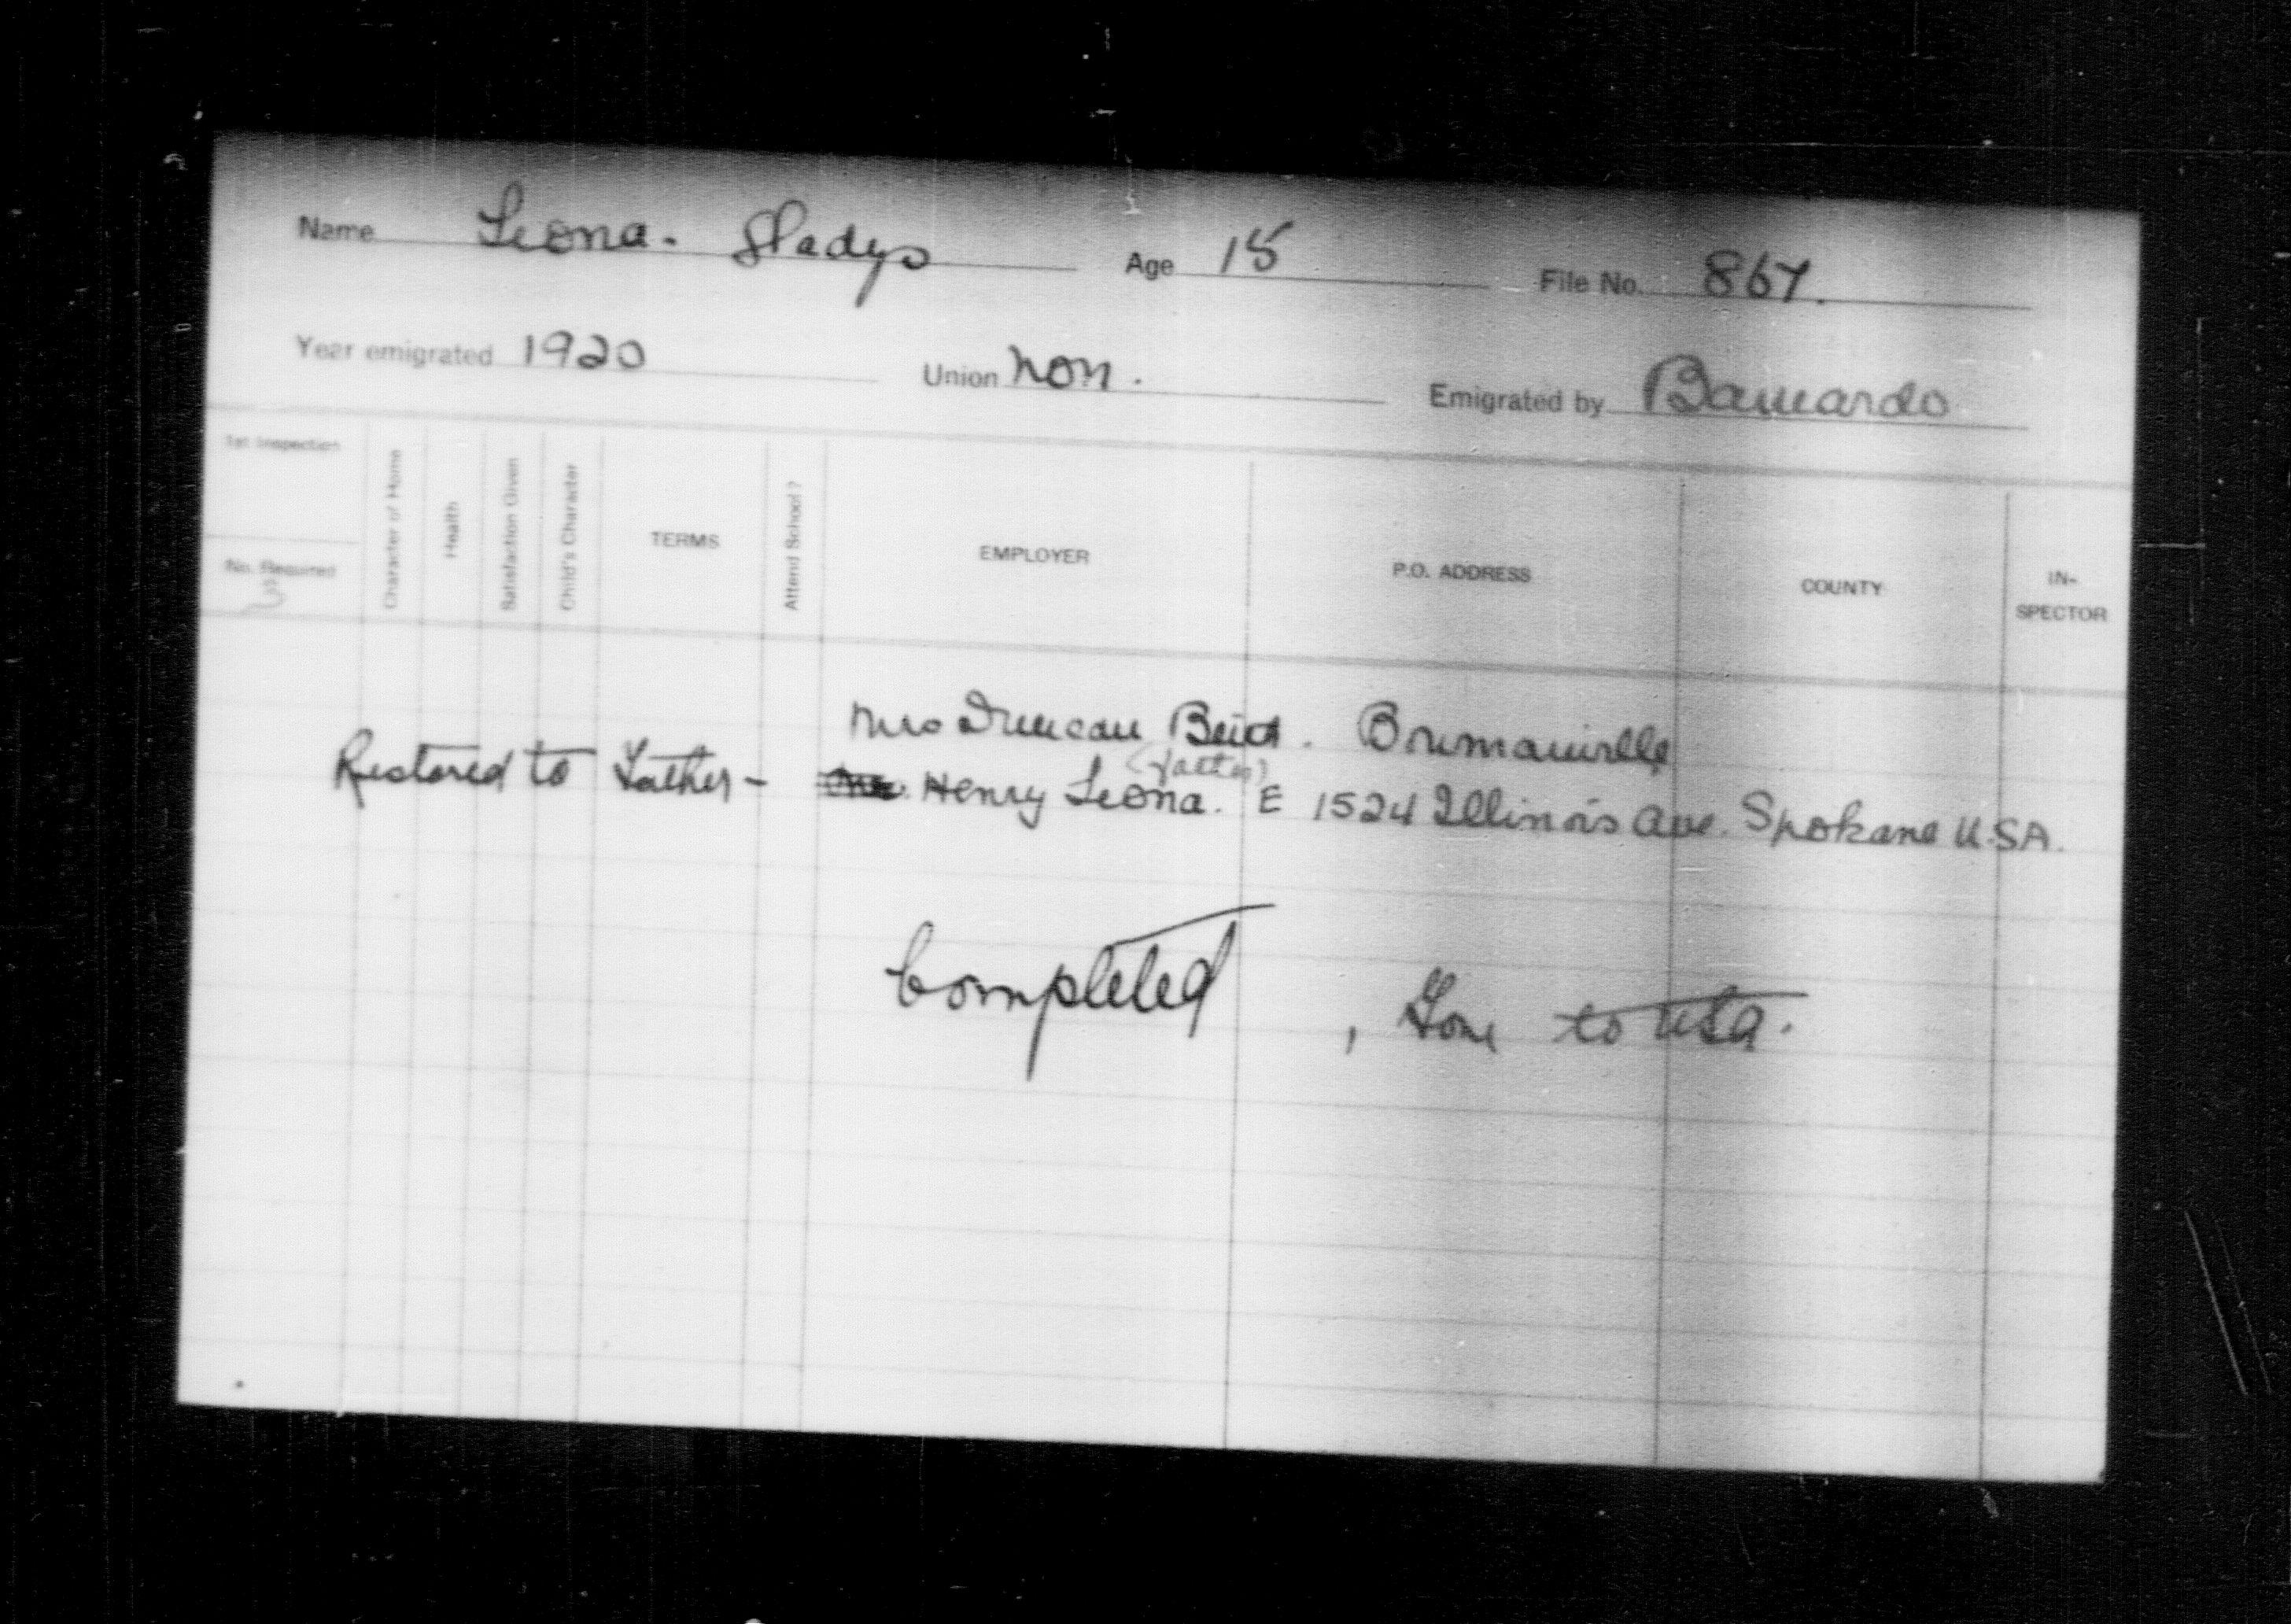 Name Leona. Gladys Age 15 File No. 867.
Year emigrated 1920 Union Non. Emigrated by Barnardo
1st Inspection
No. Required
Character of Home
Health
Satisfaction Given
Child's Character
TERMS
Attend School?
EMPLOYER
P.O. ADDRESS
COUNTY
IN-
SPECTOR
Mrs Duncan Beith. Bowmanville
(father)
Restored to Father - Henry Leona. E 1524 Illinois Ave. Spokane U.S.A.
Completed, Gone to USA.